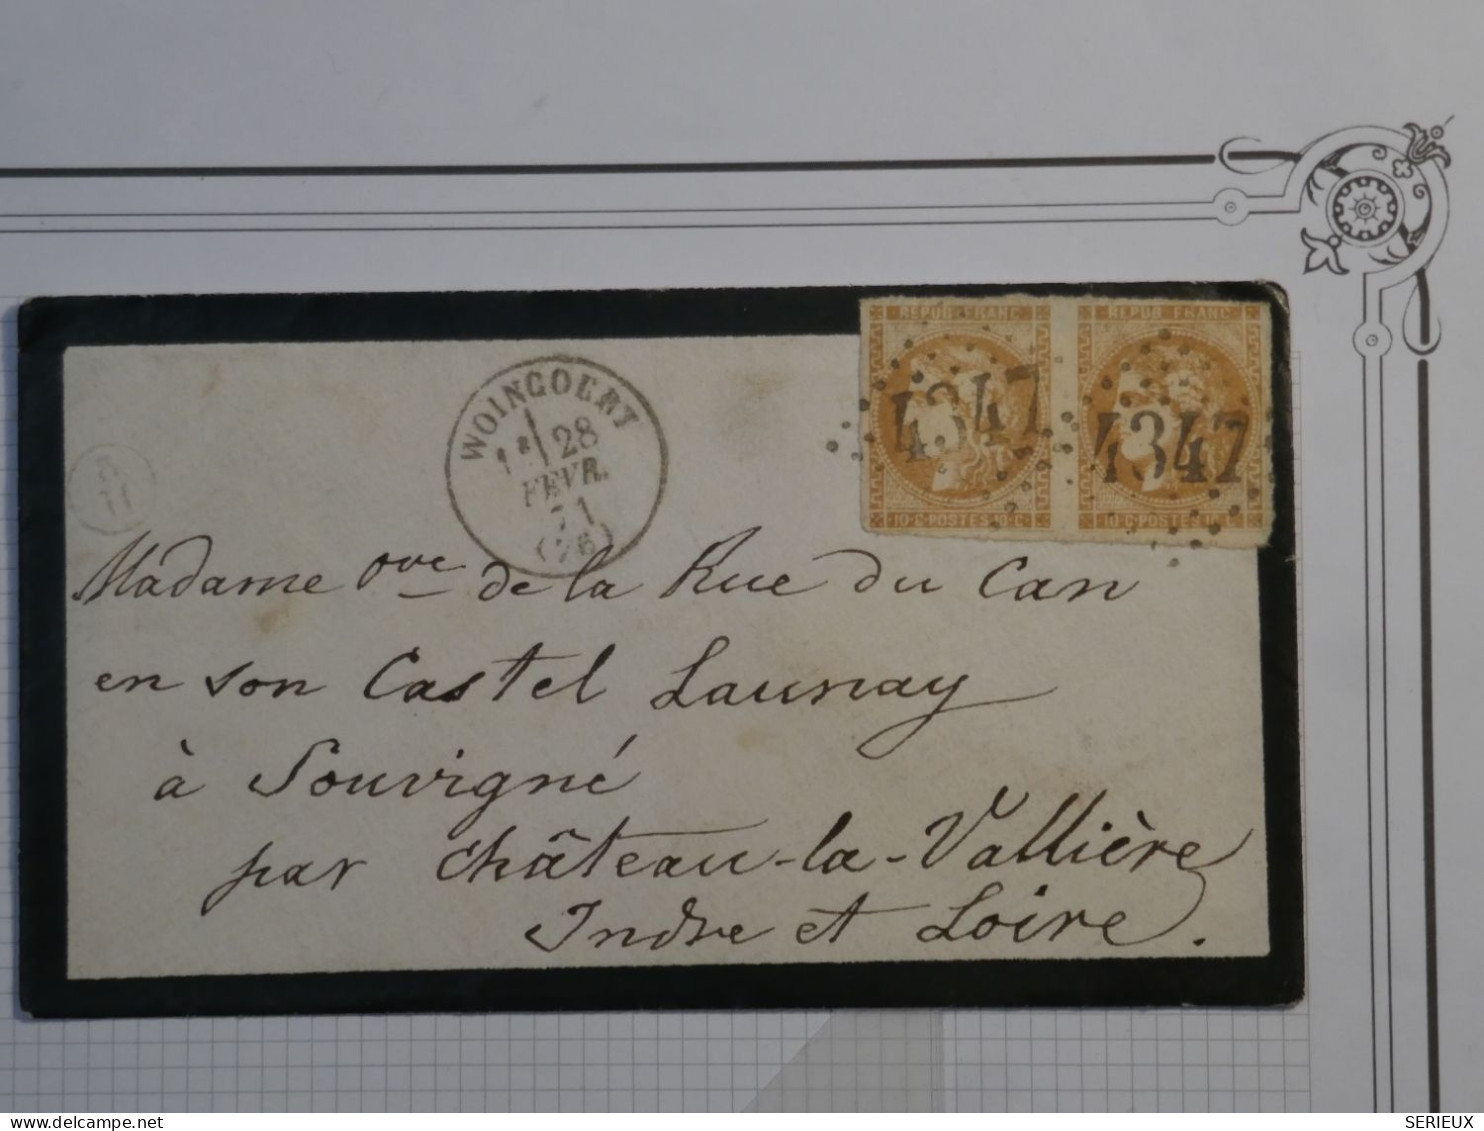 REPUB FRANC
REPUB FRANC
4347
4347
10·C·POSTES·10·C
10·C·POSTES·10·C
WOINCOURT
1E 28
FEVR.
71
(76)
Madame Vve de la Rue du Can
en son Castel Launay
à Souvigné
par Château-la-Vallière
Indre et Loire.
www.delcampe.net
SERIEUX